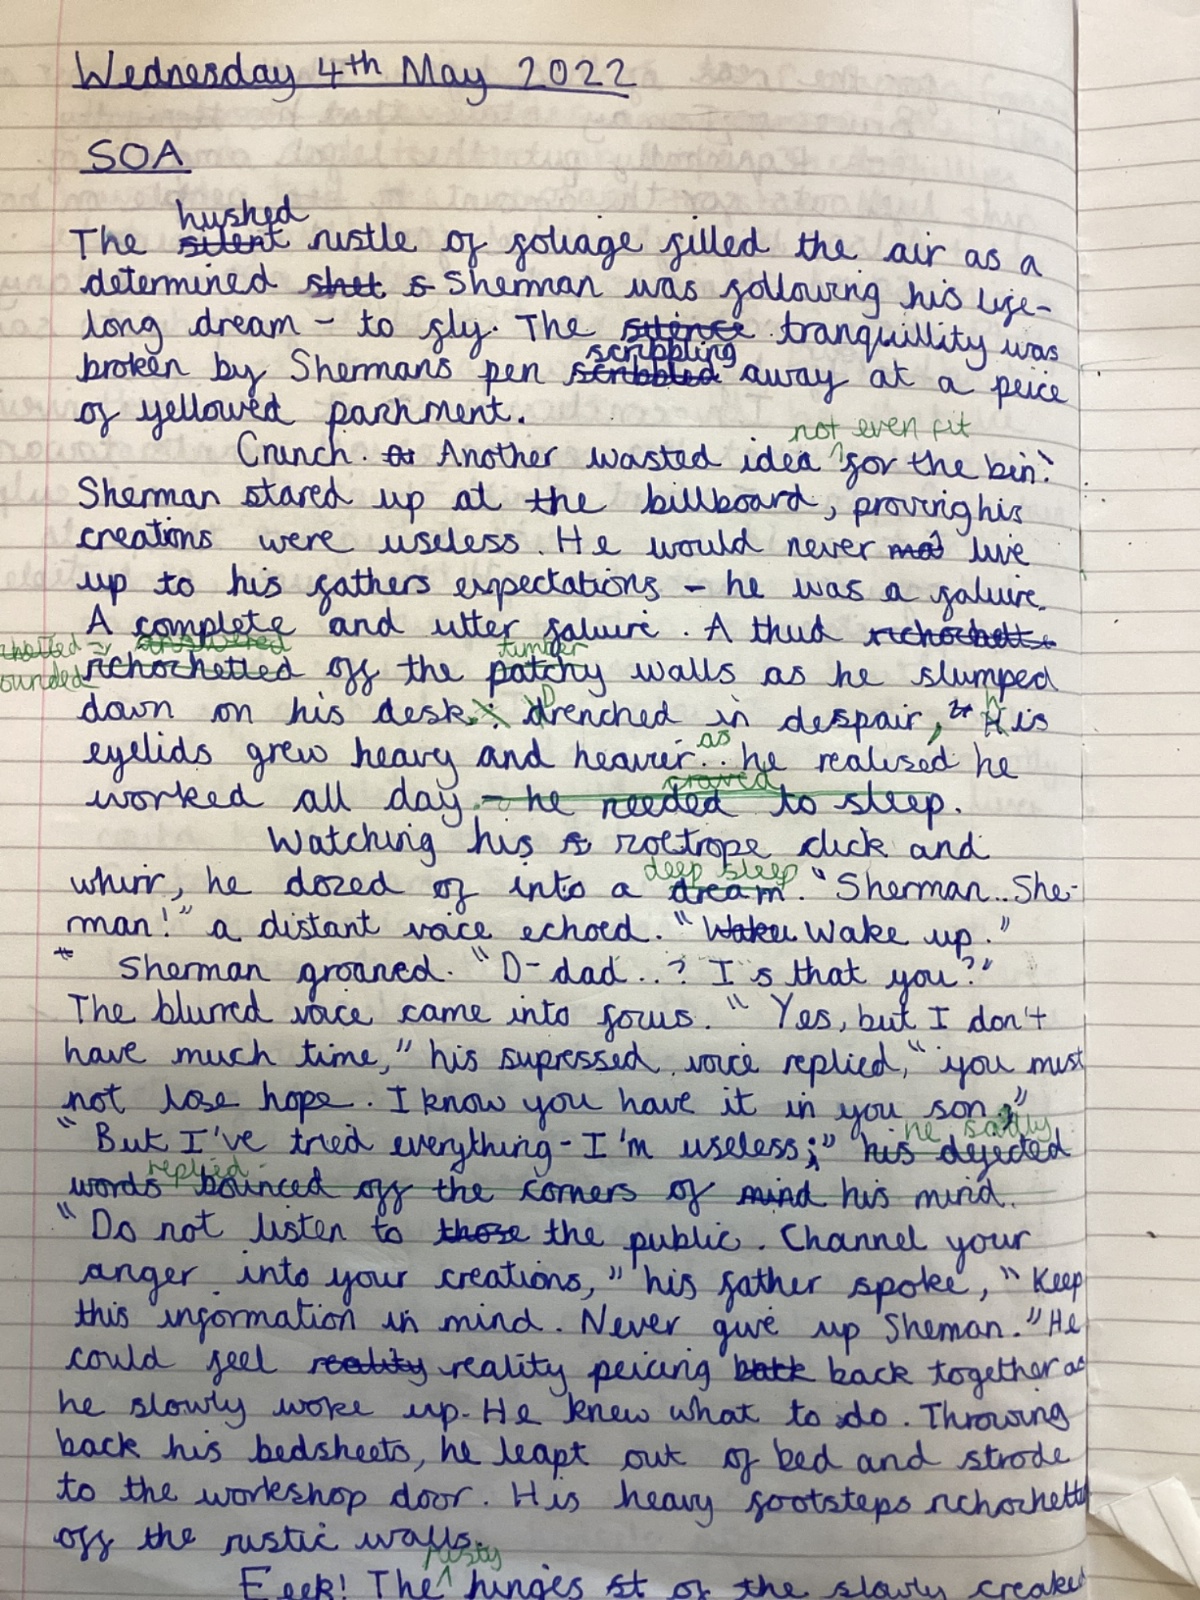 Wednesday 4th May 2022
SOA
hushed
The silent rustle of foliage filled the air as a
determined shet s Sherman was following his life-
long dream - to fly. The silence tranquillity was
scribbling
broken by Shermans pen scribbled away at a peice
of yellowed parkment.
not even fit
Crunch. Another wasted idea ^ for the bin.
Sherman stared up at the billboard, proving his
creations were useless. He would never live
up to his fathers expectations - he was a faluire.
A complete and utter faluire. A thud richochett
answered timber
richochetted off the patchy walls as he slumped
down on his desk. Drenched in despair, His
as
eyelids grew heavy and heavier.. he realised he
craved
worked all day - he needed to sleep.
Watching his s zoetrope click and
deep sleep
whirr, he dozed of into a dream. "Sherman...She-
man!" a distant voice echoed. "Waku Wake up."
Sherman groaned. "D-dad..? Is that you?"
The blurred voice came into focus. "Yes, but I don't
have much time," his supressed voice replied, "you must
not lose hope. I know you have it in you son."
he sadly
"But I've tried everything - I'm useless;" his dejected
replied
words bounced off the corners of mind his mind.
"Do not listen to those the public. Channel your
anger into your creations," his father spoke, "Keep
this information in mind. Never give up Sheman." He
could feel reality reality peicing back back together as
he slowly woke up. He knew what to do. Throwing
back his bedsheets, he leapt out of bed and strode
to the workshop door. His heavy footsteps richochetted
off the rustic walls.
rusty
Eeek! The ^ hinges st of the slowly creaked